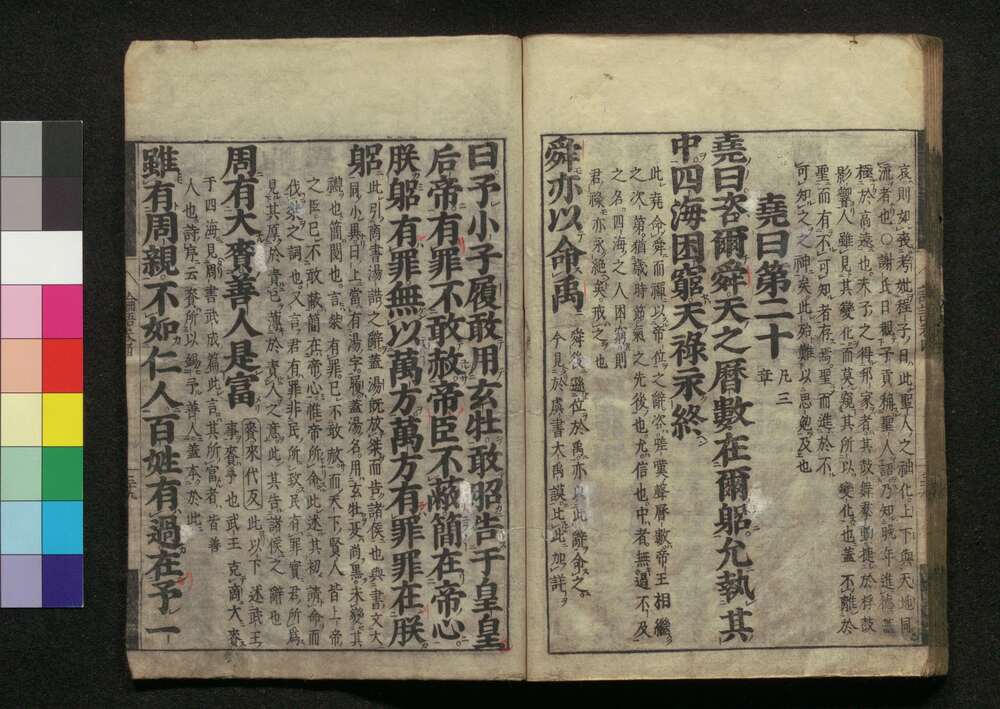 哀則如喪考妣程子曰此聖人之神化上下與天地同
流者也○謝氏曰觀子貢稱聖人語乃知晚年進德蓋
極於高遠也夫子之得邦家者其鼓舞羣動捷於桴鼓
影響人雖見其變化而莫窺其所以變化也蓋不離於
聖而有不可知者存焉聖而進於不
可知之之神矣此殆難以思勉及也
堯曰第二十
凡三
章
堯曰咨爾舜天之曆數在爾躬允執其
中四海困窮天祿永終
此堯命舜而禪以帝位之辭咨嗟嘆聲曆數帝王相繼
之次第猶歲時節氣之先後也允信也中者無過不及
之名四海之人困窮則
君祿亦永絕矣戒之也
舜亦以命禹
舜後遜位於禹亦以此辭命之
今見於虞書大禹謨比此加詳
曰予小子履敢用玄牡敢昭告于皇皇
后帝有罪不敢赦帝臣不蔽簡在帝心
朕躬有罪無以萬方萬方有罪罪在朕
躬
此引商書湯誥之辭蓋湯既放桀而告諸侯也與書文大
同小異曰上當有湯字履蓋湯名用玄牡夏尚黑未變其
禮也簡閱也言桀有罪己不敢赦而天下賢人皆上帝
之臣己不敢蔽簡在帝心惟帝所命此述其初請命而
伐桀之詞也又言君有罪非民所致民有罪實君所爲
見其厚於責己薄於責人之意此其告諸侯之辭也
周有大賚善人是富
賚來代反
此以下述武王
事賚予也武王克商大賚
于四海見周書武成篇此言其所富者皆善
人也詩序云賚所以錫予善人蓋本於此
雖有周親不如仁人百姓有過在予一